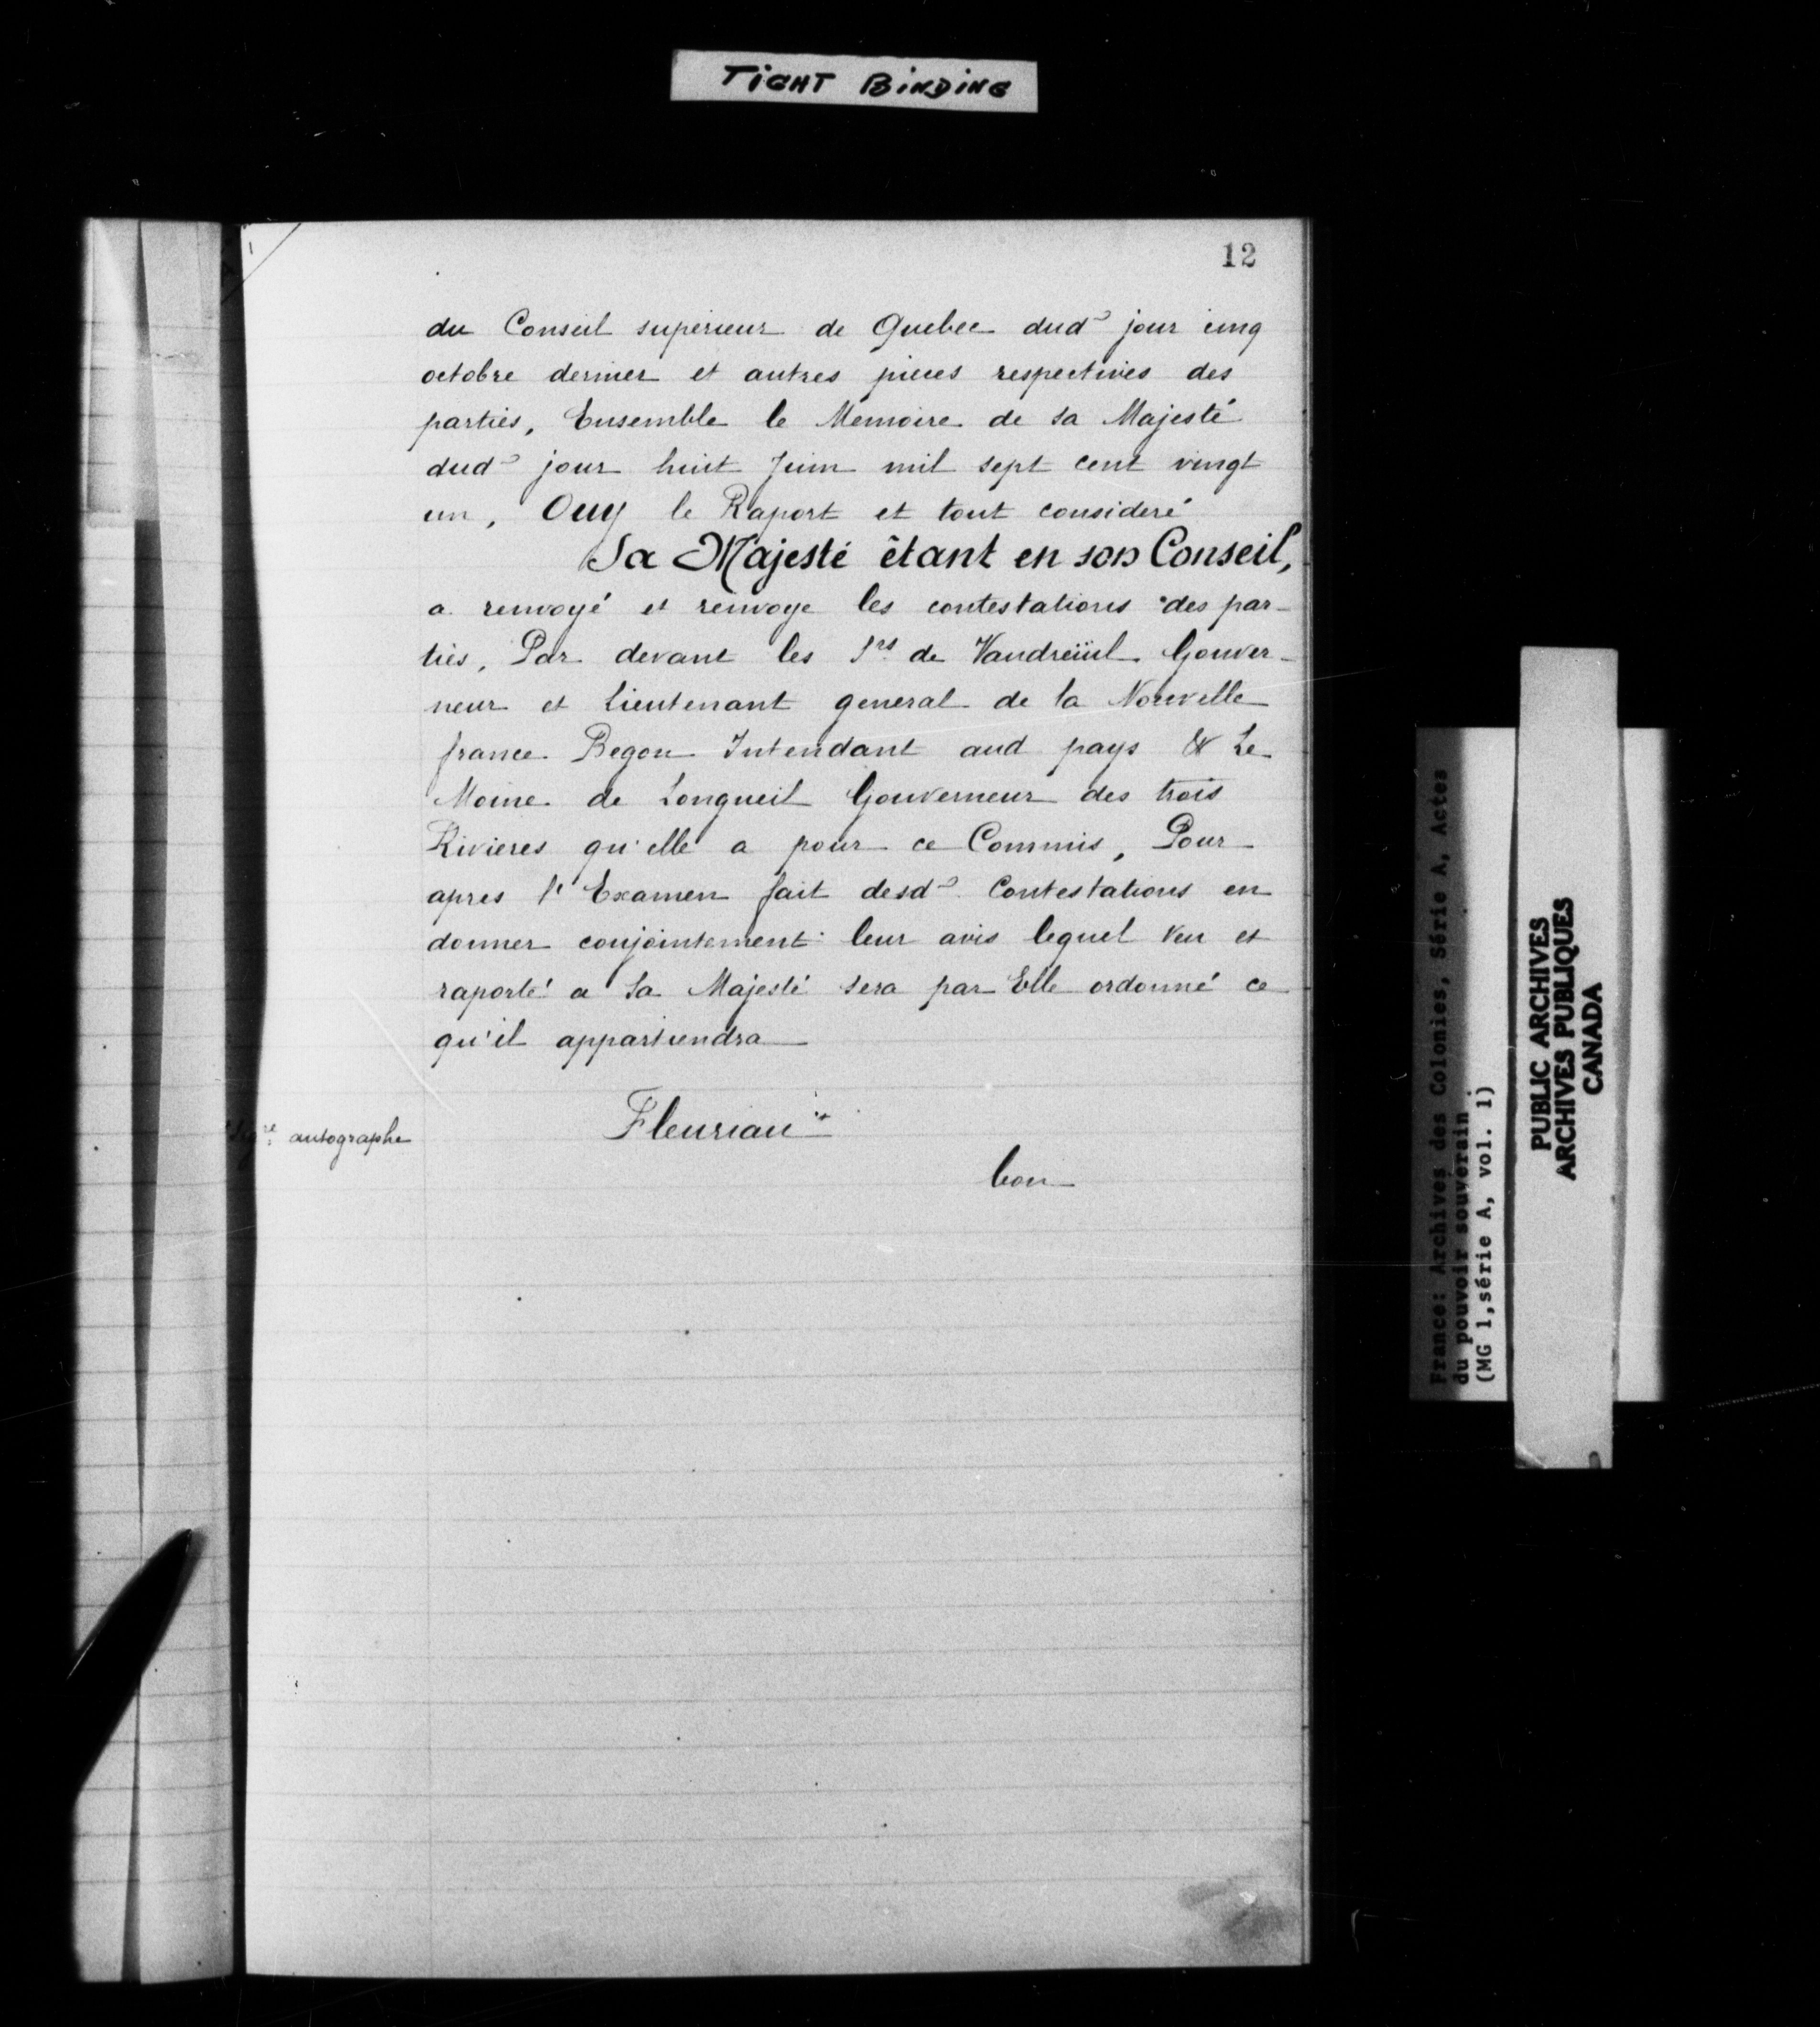 TIGHT BINDING
12
du Conseil superieur de Quebec dud jour cinq
octobre dernier et autres pieces respectives des
parties, Ensemble le Memoire de sa Majesté
dud jour huit Juin mil sept cent vingt
un, Ouy le Raport et tout consideré
Sa Majesté étant en son Conseil,
a renvoyé et renvoye les contestations des par-
ties, Par devant les Srs de Vaudreüil Gouver-
neur et Lieutenant general de la Nouvelle
france Begon Intendant aud pays & Le
Moine de Longueil Gouverneur des trois
Rivieres qu'elle a pour ce Commis, Pour
apres l'Examen fait desd Contestations en
donner conjointement leur avis lequel veu et
raporté a Sa Majesté sera par Elle ordonné ce
qu'il appartiendra
Sigre autographe
Fleuriau
bon
France: Archives des Colonies, Série A, Actes
du pouvoir souverain
(MG 1, série A, vol. 1)
PUBLIC ARCHIVES
ARCHIVES PUBLIQUES
CANADA